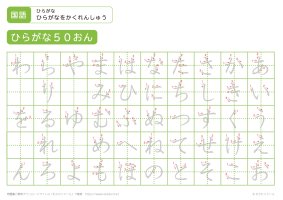 国語
ひらがな
ひらがなをかくれんしゅう
ひらがな50おん
わらやまはなたさかあ
りみひにちしきい
をるゆむふぬつすくう
れめへねてせけえ
んろよもほのとそこお